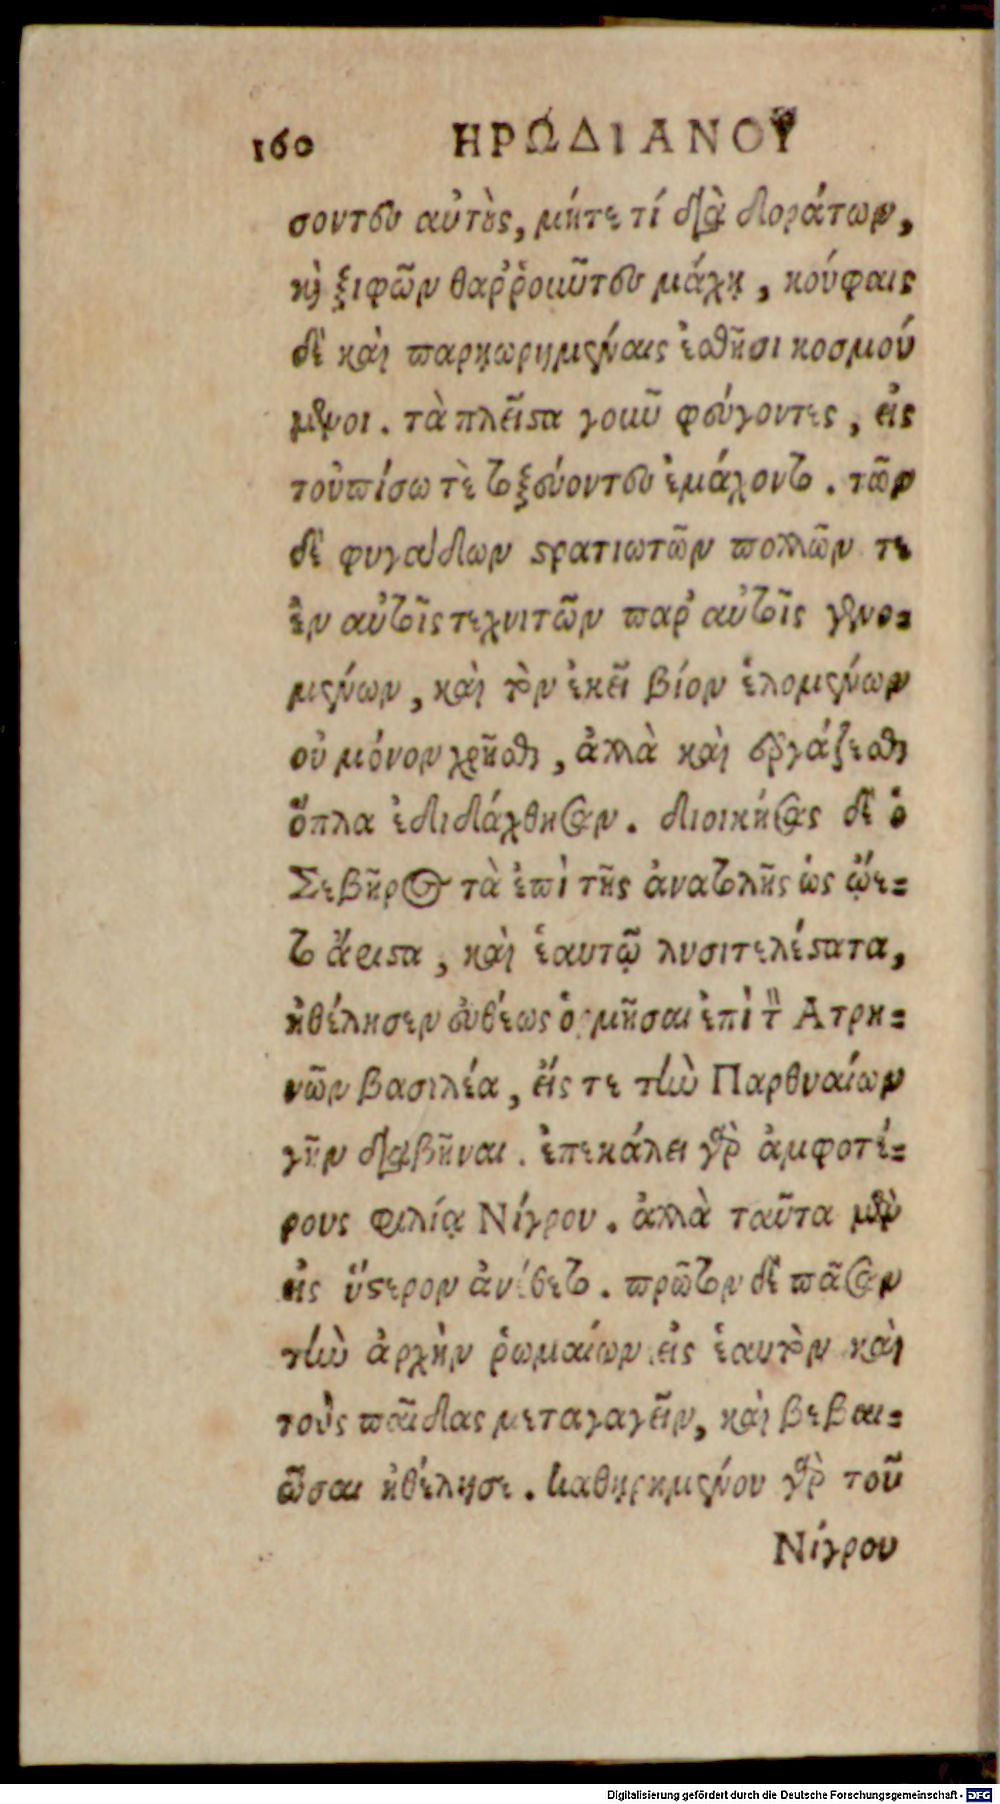 160 ΗΡΩΔΙΑΝΟΥ
σοντες αὐτοὺς, μήτε τί διὰ δοράτων,
καὶ ξιφῶν θαῤῥοιῶτες μάχῃ, κούφαις
δὲ καὶ παρῃωρημέναις ἐσθῆσι κοσμού
μενοι. τὰ πλεῖστα γοιῶ φεύγοντες, εἰς
τοὐπίσω τὲ τοξεύοντες ἐμάχοντο. τῶν
δὲ φυγάδων στρατιωτῶν πολλῶν τε
ἐν αὐτοῖς τεχνιτῶν παρ' αὐτοῖς γενο-
μένων, καὶ τὸν ἐκεῖ βίον ἑλομένων
οὐ μόνον χρῆσθαι, ἀλλὰ καὶ ἐργάζεσθαι
ὅπλα ἐδιδάχθησαν. διοικήσας δὲ ὁ
Σεβῆρος τὰ ἐπὶ τῆς ἀνατολῆς ὡς ᾤε-
το ἄριστα, καὶ ἑαυτῷ λυσιτελέστατα,
ἠθέλησεν εὐθέως ὁρμῆσαι ἐπὶ τὸν Ατρη-
νῶν βασιλέα, εἴς τε τὴν Παρθυαίων
γῆν διαβῆναι. ἐπεκάλει γὰρ ἀμφοτέ-
ρους φιλίᾳ Νίγρου. ἀλλὰ ταῦτα μὲν
εἰς ὕστερον ἀνέθετο. πρῶτον δὲ πᾶσαν
τὴν ἀρχὴν ῥωμαίων εἰς ἑαυτὸν καὶ
τοὺς παῖδας μεταγαγεῖν, καὶ βεβαι-
ῶσαι ἠθέλησε. καθῃρημένου γὰρ τοῦ
Νίγρου
Digitalisierung gefördert durch die Deutsche Forschungsgemeinschaft - DFG